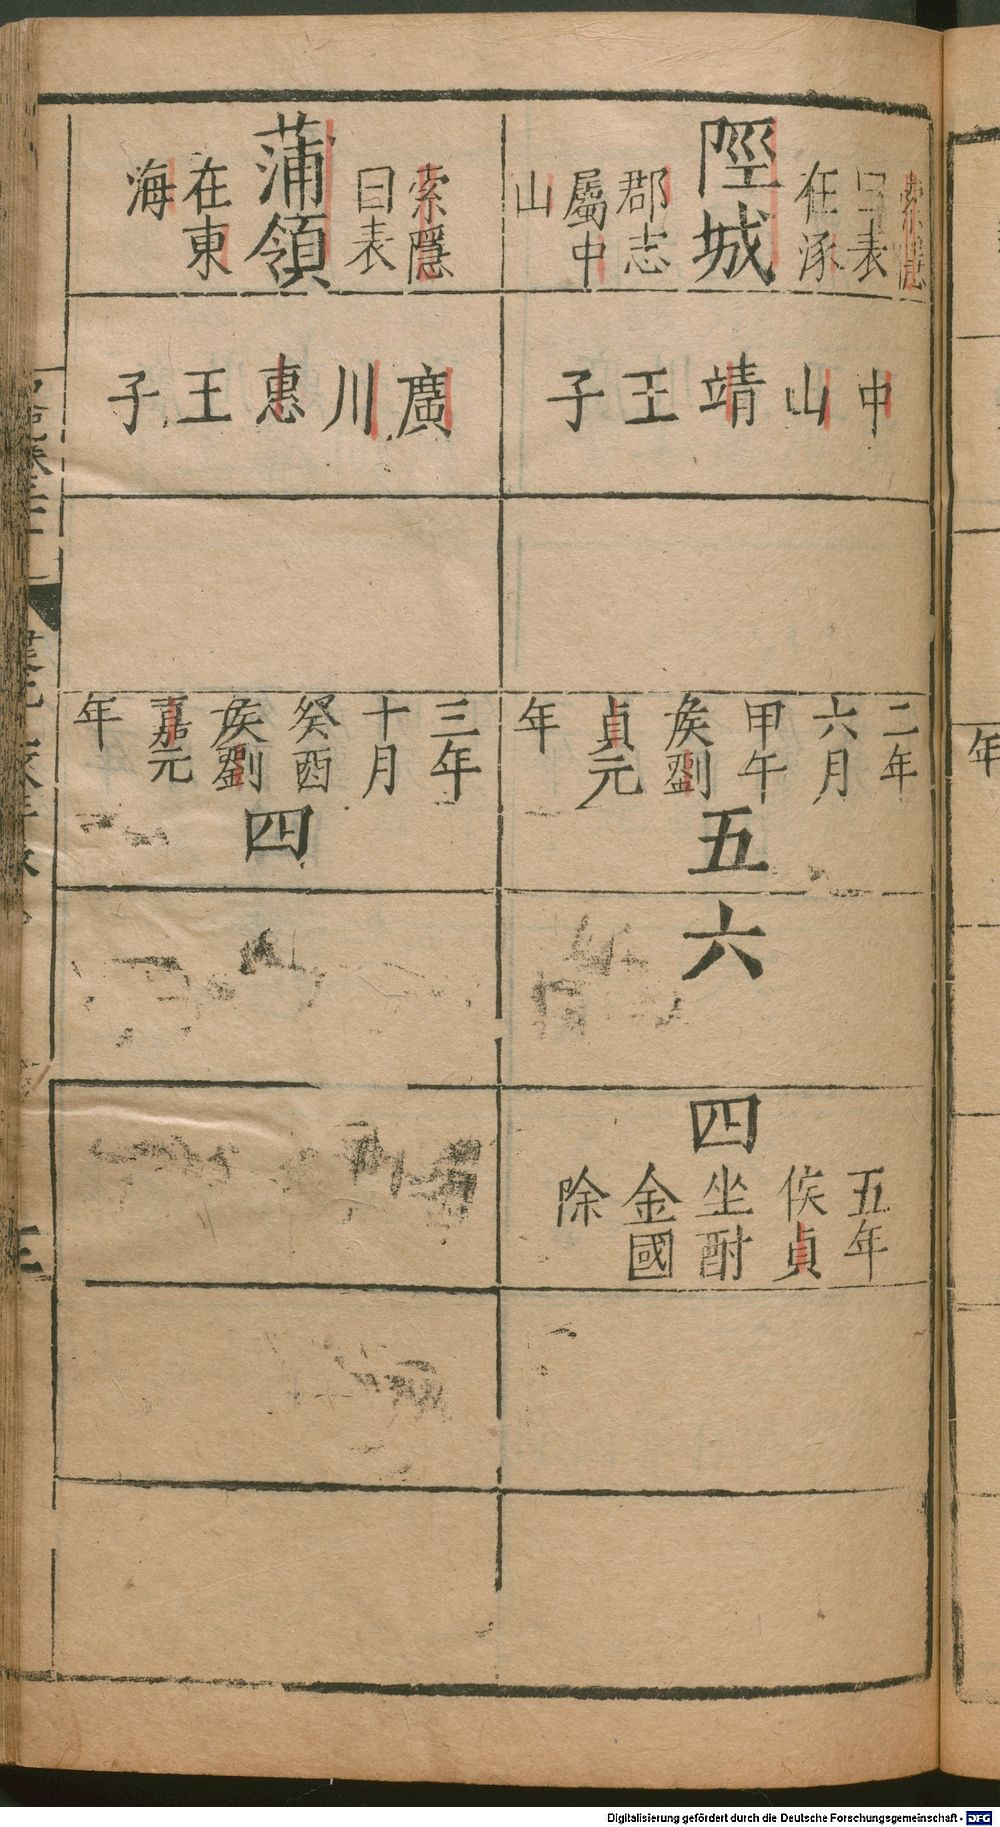 索隱
曰表
在涿
陘城
郡志
屬中
山
中山靖王子
二年
六月
甲午
矦劉
貞元
年
五
六
四
五年
侯貞
坐酎
金國
除
索隱
曰表
蒲領
在東
海
廣川惠王子
三年
十月
癸酉
矦劉
嘉元
年
四
年
Digitalisierung gefördert durch die Deutsche Forschungsgemeinschaft - DFG